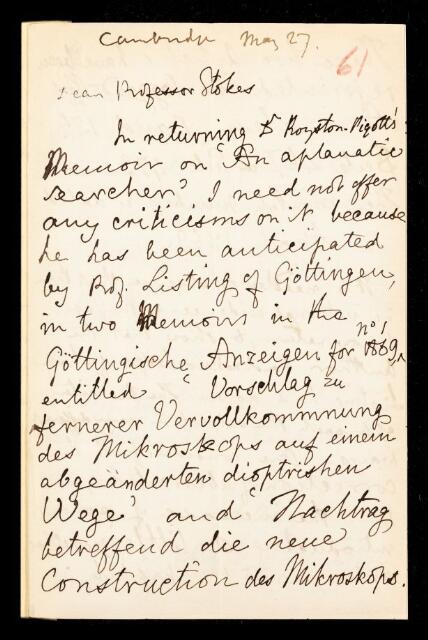 Cambridge May 27.
61
Dear Professor Stokes
In returning Dr Royston-Pigott's
Memoir on 'An aplanatic
searcher' I need not offer
any criticisms on it because
he has been anticipated
by Prof. Listing of Göttingen,
in two Memoirs in the
Göttingische Anzeigen for no 1 1869,
entitled 'Vorschlag zu
fernerer Vervollkommnung
des Mikroskops auf einem
abgeänderten dioptrishen
Wege' and 'Nachtrag
betreffend die neue
Construction des Mikroskops.